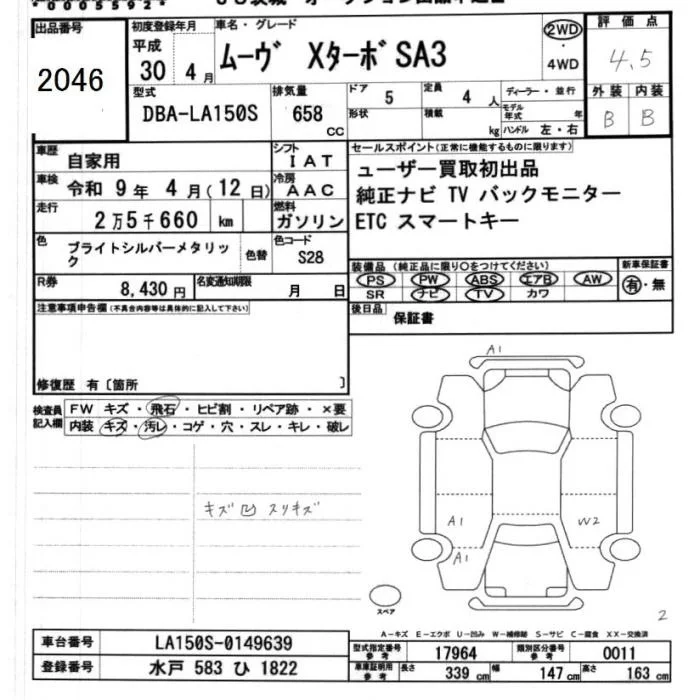 *00055924*
出品番号
2046
初度登録年月
平成
30 4月
車名・グレード
ムーヴ XターボSA3
2WD
・
4WD
評価点
4.5
外装 内装
B B
型式
DBA-LA150S
排気量
658
CC
ドア
5
形状
定員
4 人
積載
kg
ディーラー・並行
モデル年式 年
ハンドル 左・右
車歴
自家用
シフト
IAT
車検
令和 9年 4月(12日)
冷房
AAC
走行
2万5千660 km
燃料
ガソリン
色
ブライトシルバーメタリック
色替
色コード
S28
R券
8,430円
名変通知期限
月 日
セールスポイント(正常に機能するものに限ります)
ユーザー買取初出品
純正ナビ TV バックモニター
ETC スマートキー
装備品(純正品に限り〇をつけてください)
PS PW ABS エアB AW
SR ナビ TV カワ
新車保証書
有・無
後日品
保証書
注意事項申告欄(不具合内容等は具体的に記入して下さい)
修復歴 有〔箇所 〕
検査員
記入欄
FW キズ・飛石・ヒビ割・リペア跡・×要
内装 キズ・汚レ・コゲ・穴・スレ・キレ・破レ
キズ 凹 スリキズ
A1
A1
W2
A1
スペア
2
A-キズ E-エクボ U-凹み W-補修跡 S-サビ C-腐食 XX-交換済
車台番号
LA150S-0149639
登録番号
水戸 583 ひ 1822
型式指定番号
参考
17964
類別区分番号
参考
0011
車庫証明用
参考
長さ
339 cm
幅
147 cm
高さ
163 cm